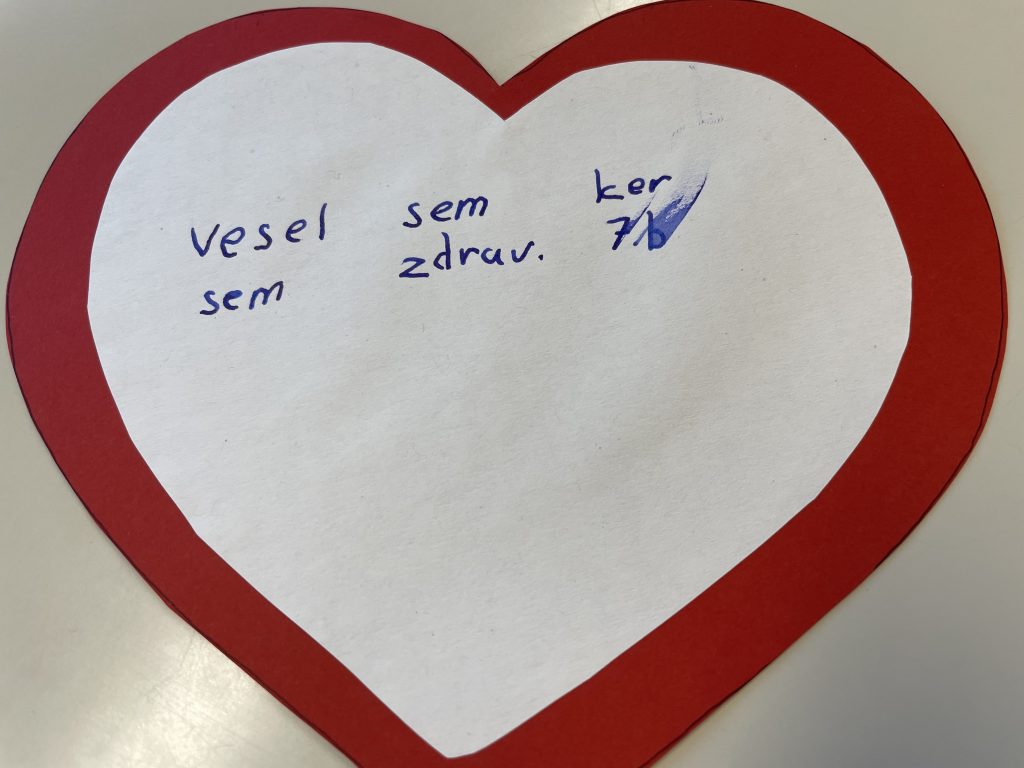 Vesel sem ker
sem zdrav. 7b